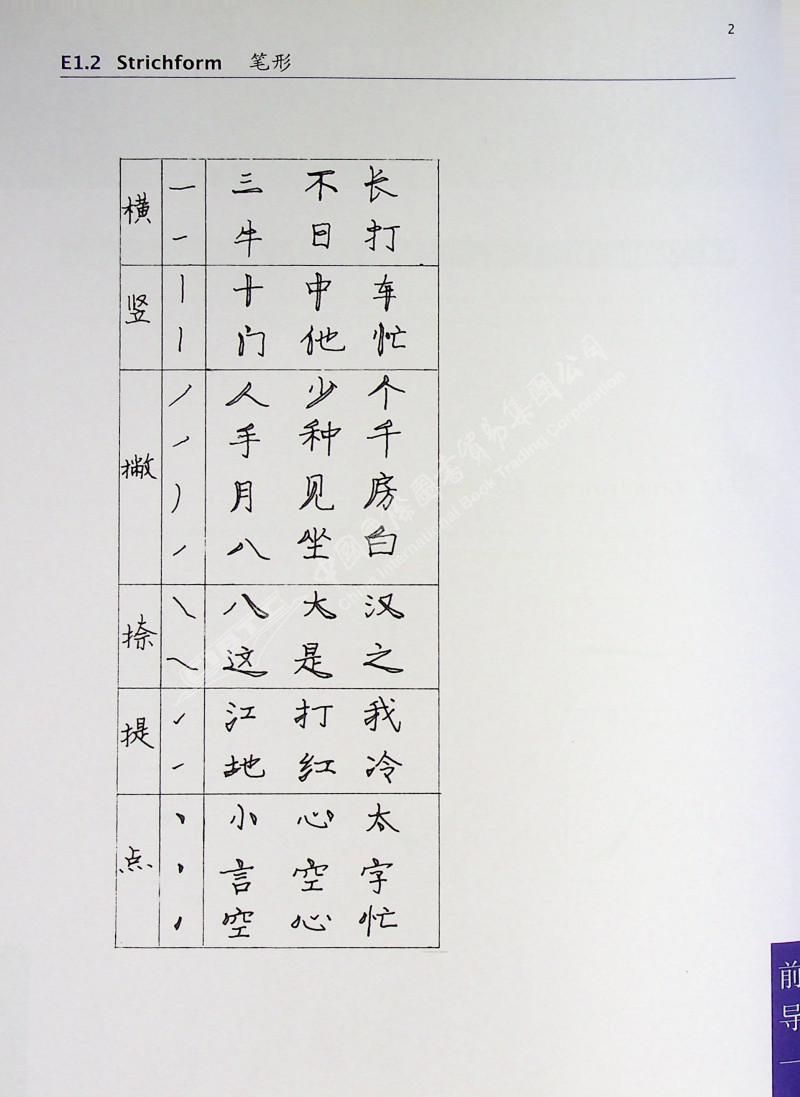 2
E1.2 Strichform 笔形
横 一 三 不 长
一 牛 日 打
竖 丨 十 中 车
丨 门 他 忙
撇 丿 人 少 个
丿 手 种 千
丿 月 见 房
丿 八 坐 白
捺 ㇏ 八 大 汉
㇏ 这 是 之
提 ㇀ 江 打 我
㇀ 地 红 冷
点 丶 小 心 太
丶 言 空 字
丶 空 心 忙
中国国际图书贸易集团公司
China International Book Trading Corporation
前导一